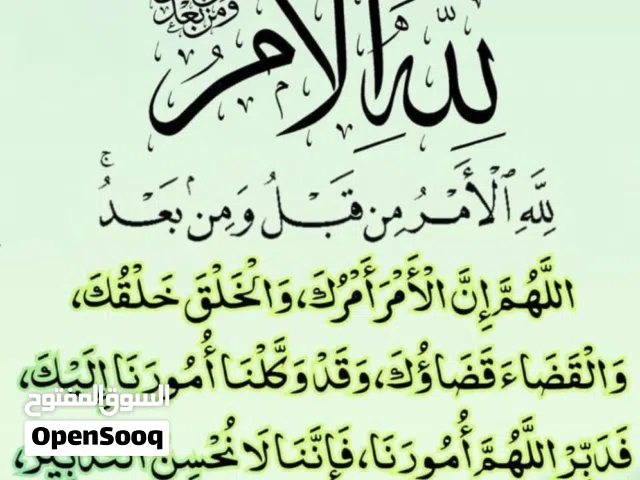 لِلَّهِ الْأَمْرُ
وَمِنْ بَعْدُ
لِلَّهِ ٱلْأَمْرُ مِن قَبْلُ وَمِنۢ بَعْدُ ۚ
اللَّهُمَّ إِنَّ الْأَمْرَ أَمْرُكَ، وَالْخَلْقَ خَلْقُكَ،
وَالْقَضَاءَ قَضَاؤُكَ، وَقَدْ وَكَّلْنَا أُمُورَنَا إِلَيْكَ،
فَدَبِّرْ اللَّهُمَّ أُمُورَنَا، فَإِنَّنَا لَا نُحْسِنُ التَّدْبِيرَ،
السوق المفتوح
OpenSooq